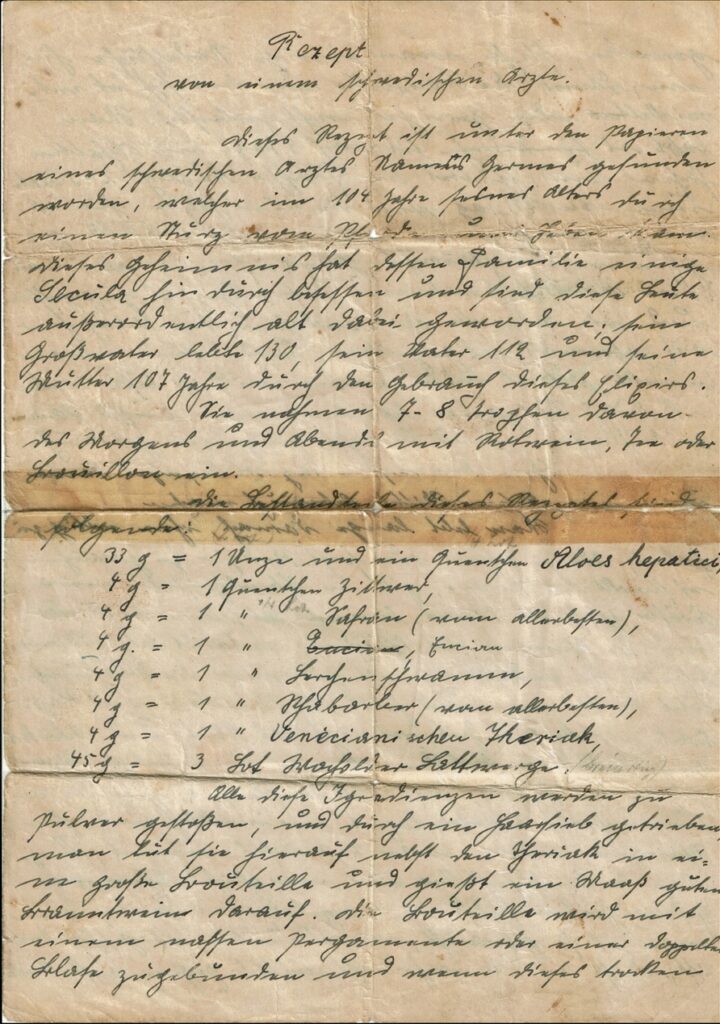 Rezept
von einem schwedischen Arzte.
Dieses Rezept ist unter den Papieren
eines schwedischen Arztes Namens Germes gefunden
worden, welcher im 104 Jahre seines Alters durch
einen Sturz vom Pferde ums Leben kam.
Dieses Geheimnis hat dessen Familie einige
Secula hindurch besessen und sind diese Leute
außerordentlich alt dabei geworden; sein
Großvater lebte 130, sein Vater 112 und seine
Mutter 107 Jahre durch den Gebrauch dieses Elixirs.
Sie nahmen 7-8 Tropfen davon
des Morgens und Abends mit Rotwein, Tee oder
Bouillon ein.
Die Bestandteile dieses Rezeptes sind
folgende:
33 g = 1 Unze und ein Quentchen Aloes hepatici,
4 g = 1 Quentchen Zittwer,
4 g = 1 " Safran (vom allerbesten),
4 g. = 1 " Encian, Encian
4 g = 1 " Lerchenschwamm,
4 g = 1 " Rhabarber (vom allerbesten),
4 g = 1 " Venecianischen Theriak,
45 g = 3 Lot Wacholder Lattwerge.
Alle diese Igredienzen werden zu
Pulver gestoßen, und durch ein Haarsieb getrieben,
man tut sie hierauf nebst den Theriak in ei-
ne große Bouteille und gießt ein Maaß guten
Branntwein darauf. Die Bouteille wird mit
einem nassen Pergamente oder einer doppelten
Blase zugebunden und wenn dieses trocken